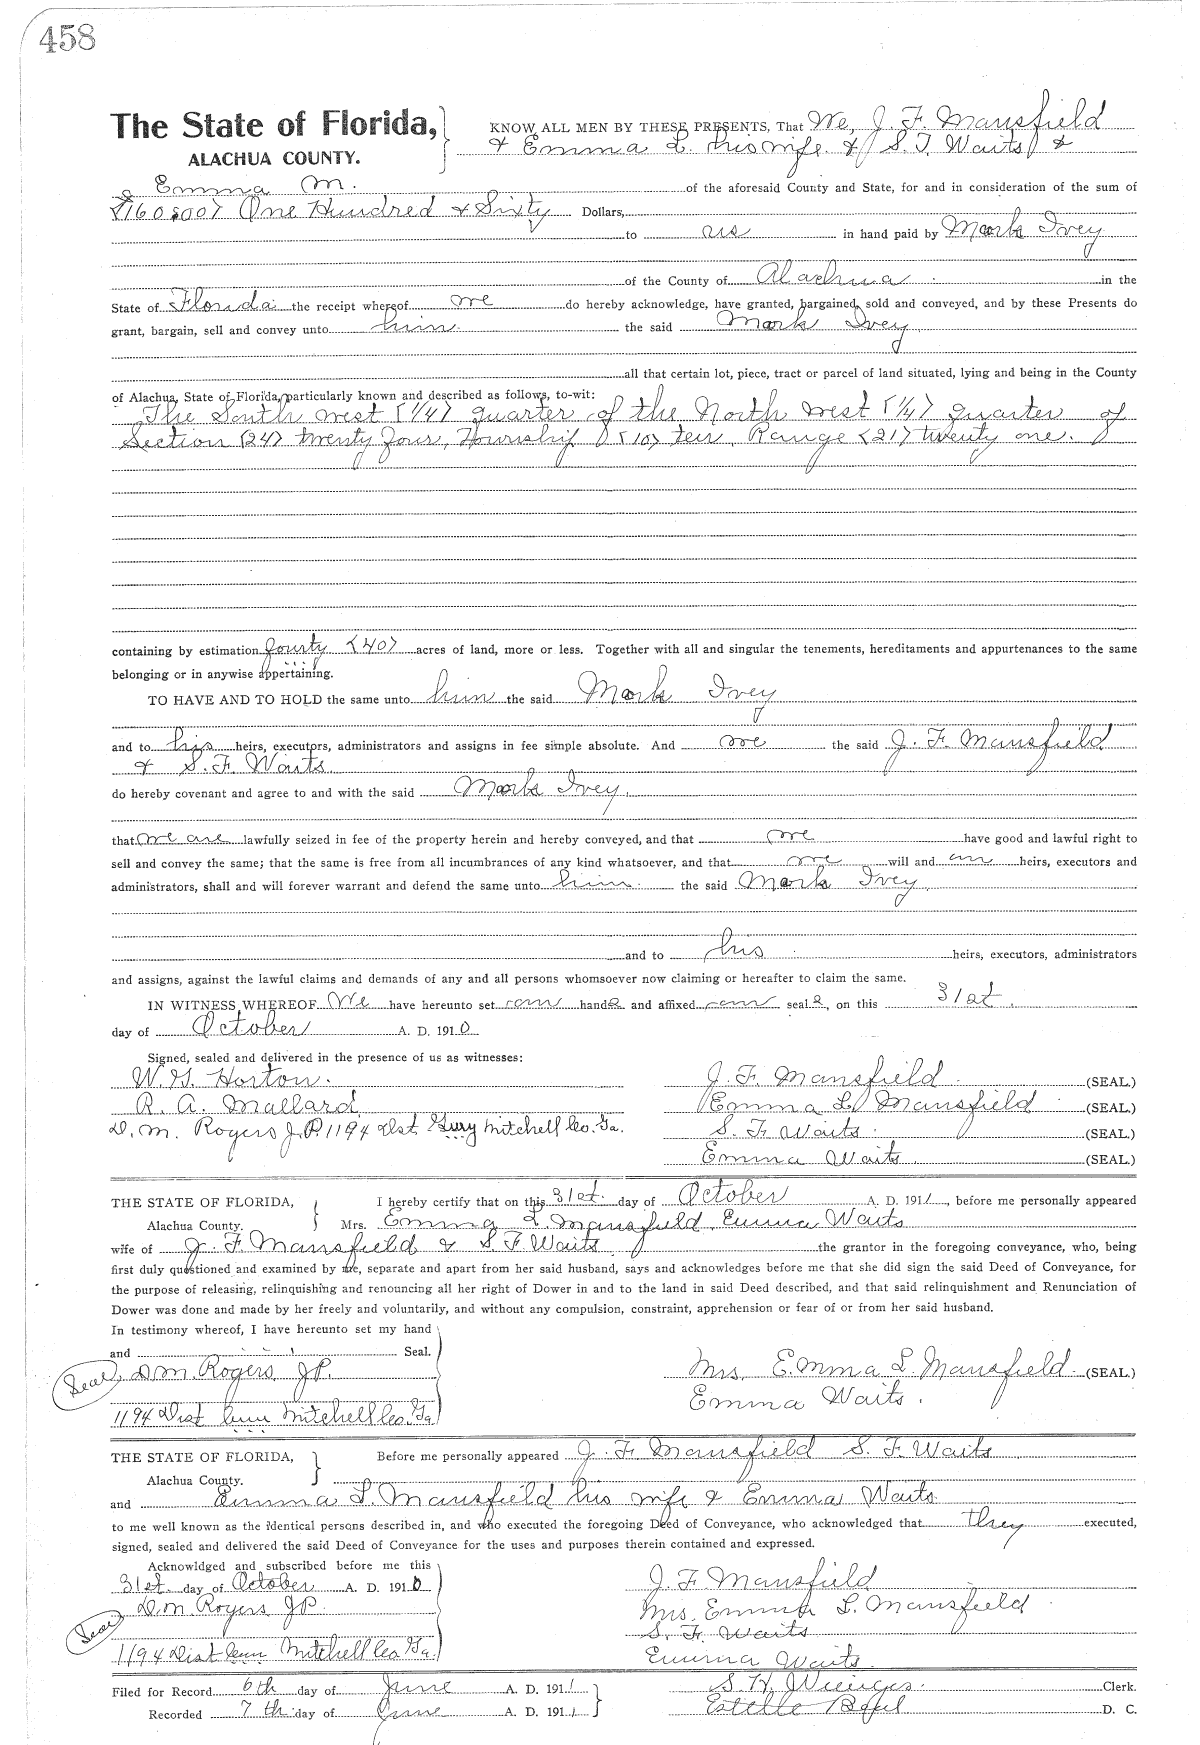 458
The State of Florida,
ALACHUA COUNTY.
KNOW ALL MEN BY THESE PRESENTS, That We, J. F. Mansfield
& Emma L. his wife & S. F. Waits &
Emma M. of the aforesaid County and State, for and in consideration of the sum of
One Hundred & Sixty Dollars,
to us in hand paid by Mark Ivey
of the County of Alachua in the
State of Florida the receipt whereof we do hereby acknowledge, have granted, bargained, sold and conveyed, and by these Presents do
grant, bargain, sell and convey unto him the said Mark Ivey
all that certain lot, piece, tract or parcel of land situated, lying and being in the County
of Alachua, State of Florida, particularly known and described as follows, to-wit:
The South west (1/4) quarter of the North west (1/4) quarter of
Section (24) twenty four, Township (10) ten, Range (21) twenty one.
containing by estimation fourty (40) acres of land, more or less. Together with all and singular the tenements, hereditaments and appurtenances to the same
belonging or in anywise appertaining.
TO HAVE AND TO HOLD the same unto him the said Mark Ivey
and to his heirs, executors, administrators and assigns in fee simple absolute. And we the said J. F. Mansfield
& S. F. Waits
do hereby covenant and agree to and with the said Mark Ivey.
that we are lawfully seized in fee of the property herein and hereby conveyed, and that we have good and lawful right to
sell and convey the same; that the same is free from all incumbrances of any kind whatsoever, and that we will and our heirs, executors and
administrators, shall and will forever warrant and defend the same unto him the said Mark Ivey
and to his heirs, executors, administrators
and assigns, against the lawful claims and demands of any and all persons whomsoever now claiming or hereafter to claim the same.
IN WITNESS WHEREOF We have hereunto set our hands and affixed our seals, on this 31st.
day of October A. D. 1910
Signed, sealed and delivered in the presence of us as witnesses:
W. G. Horton. J. F. Mansfield (SEAL.)
R. A. Mallard Emma L. Mansfield (SEAL.)
D. M. Rogers J.P. 1194 Dist Mitchell Co. Ga. S. F. Waits (SEAL.)
Emma Waits (SEAL.)
THE STATE OF FLORIDA, I hereby certify that on this 31st. day of October A. D. 1911, before me personally appeared
Alachua County. Mrs. Emma L. Mansfield Emma Waits
wife of J. F. Mansfield & S. F. Waits the grantor in the foregoing conveyance, who, being
first duly questioned and examined by me, separate and apart from her said husband, says and acknowledges before me that she did sign the said Deed of Conveyance, for
the purpose of releasing, relinquishing and renouncing all her right of Dower in and to the land in said Deed described, and that said relinquishment and Renunciation of
Dower was done and made by her freely and voluntarily, and without any compulsion, constraint, apprehension or fear of or from her said husband.
In testimony whereof, I have hereunto set my hand
and Seal.
Seal D. M. Rogers JP. Mrs. Emma L. Mansfield (SEAL.)
Emma Waits.
1194 Dist Mitchell Co. Ga
THE STATE OF FLORIDA, Before me personally appeared J. F. Mansfield S. F. Waits
Alachua County.
and Emma L. Mansfield his wife & Emma Waits
to me well known as the identical persons described in, and who executed the foregoing Deed of Conveyance, who acknowledged that they executed,
signed, sealed and delivered the said Deed of Conveyance for the uses and purposes therein contained and expressed.
Acknowldged and subscribed before me this
31st. day of October A. D. 1910 J. F. Mansfield
D. M. Rogers JP Mrs. Emma L. Mansfield
Seal S. F. Waits
1194 Dist Mitchell Co. Ga. Emma Waits
Filed for Record 6th day of June A. D. 1911 S. H. Wienges Clerk.
Recorded 7th day of June A. D. 1911 Estelle D. C.